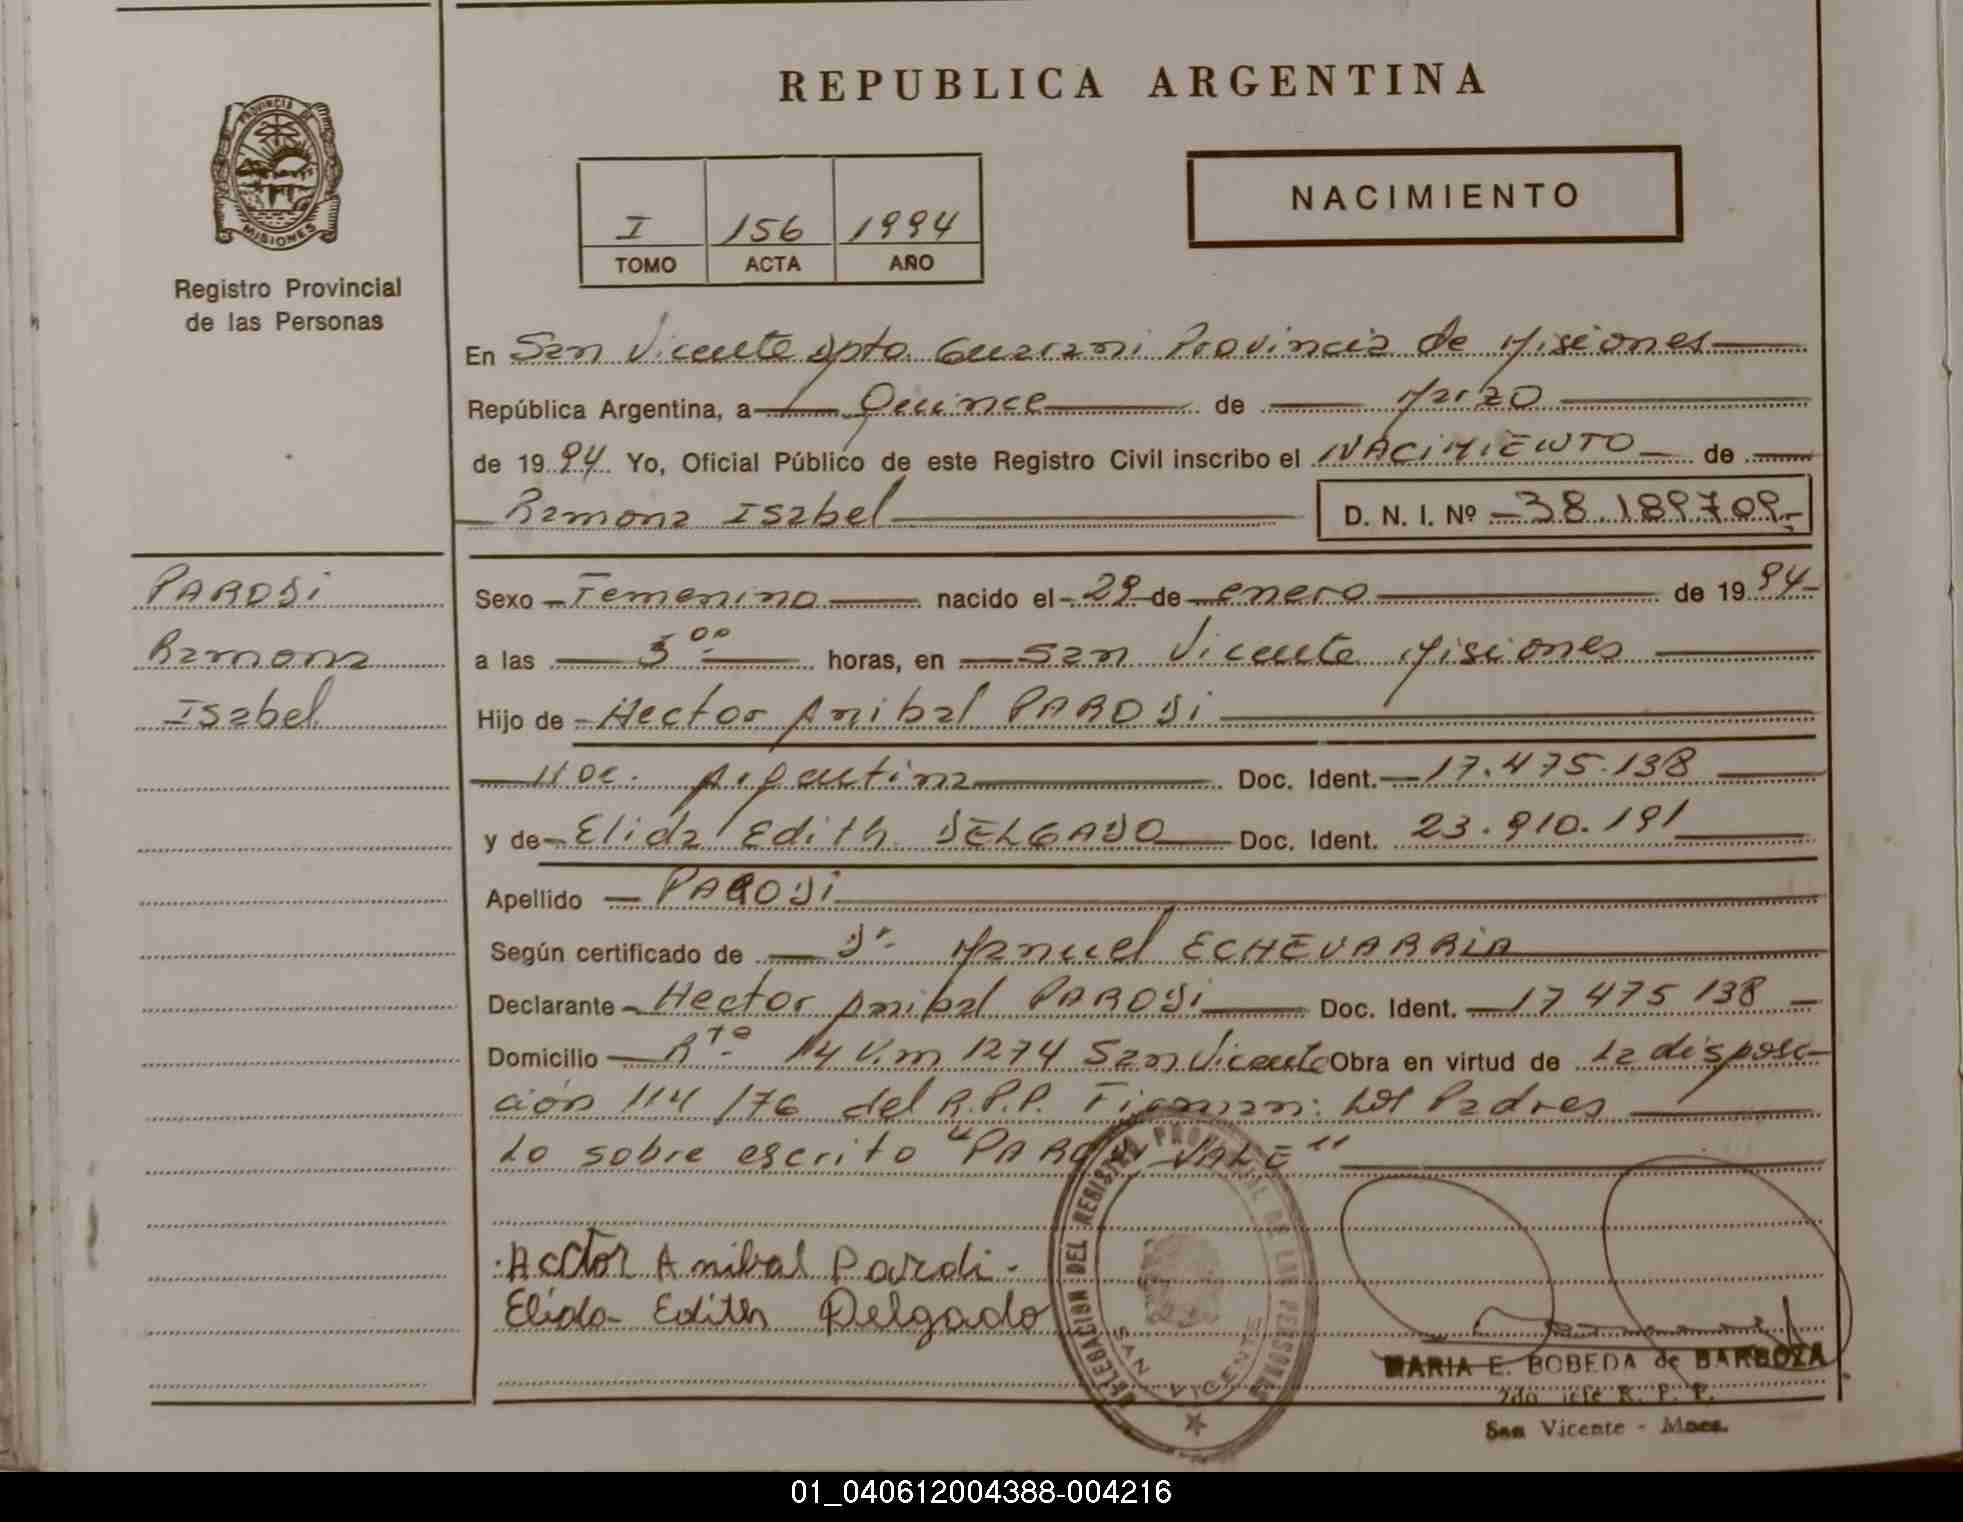 REPUBLICA ARGENTINA
PROVINCIA DE
MISIONES
Registro Provincial
de las Personas
I 156 1994
TOMO ACTA AÑO
NACIMIENTO
En San Vicente Dpto. Guarani Provincia de Misiones
República Argentina, a Quince de Marzo
de 1994 Yo, Oficial Público de este Registro Civil inscribo el NACIMIENTO de
Ramona Isabel D. N. I. Nº 38.189709
PARODi
Ramona
Isabel
Sexo Femenino nacido el 29 de enero de 1994
a las 5 00 horas, en San Vicente Misiones
Hijo de Hector Anibal PARODi
Nac. Argentina Doc. Ident. 17.475.138
y de Elida Edith DELGADO Doc. Ident. 23.910.191
Apellido PARODi
Según certificado de Dr. Manuel ECHEVARRIA
Declarante Hector Anibal PARODi Doc. Ident. 17 475 138
Domicilio Rta. 14 K.m 1274 San Vicente Obra en virtud de la disposi-
ción 114/76 del R.P.P. Firman: Los Padres
Lo sobre escrito "PARODi VALE"
Hector Anibal Parodi
Elida Edith Delgado
DELEGACION DEL REGISTRO PROVINCIAL DE LAS PERSONAS
SAN VICENTE
MARIA E. BOBEDA de BARBOZA
2do. Jefe R. P. P.
San Vicente - Mnes.
01_040612004388-004216